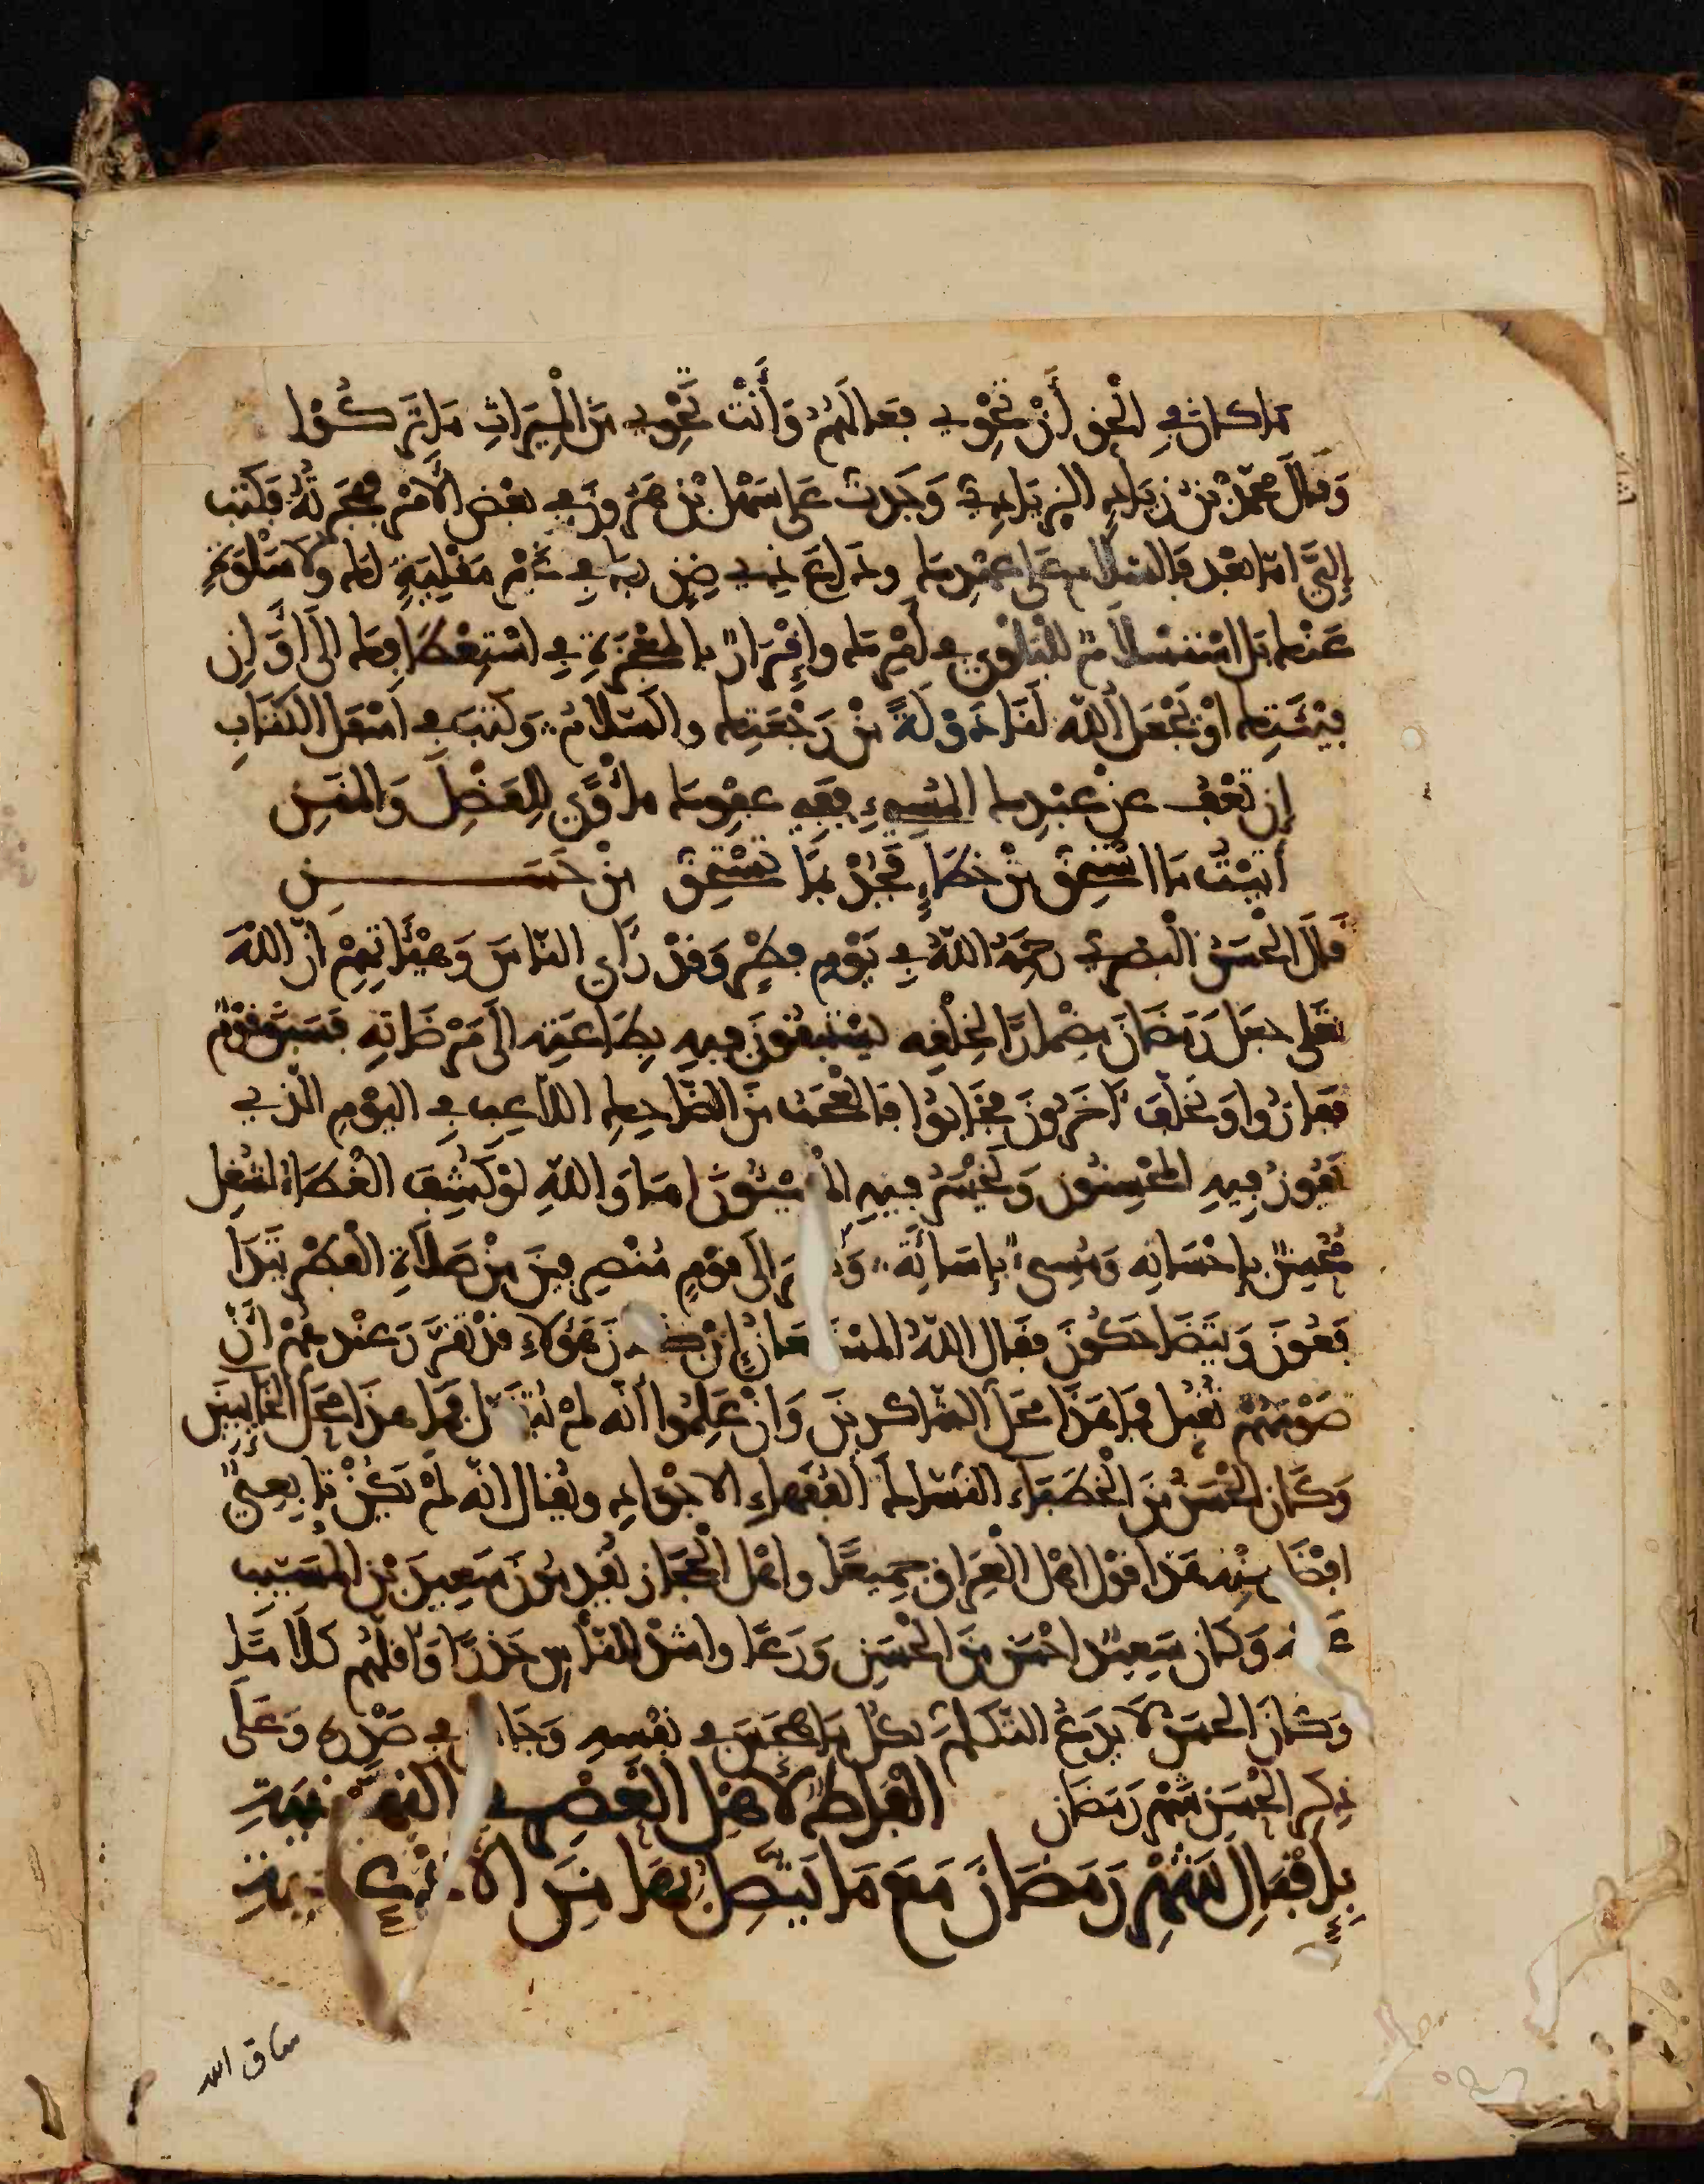 ما كان في الحق أن تحوي فعالهم وأنت تحوي من الميراث ما تركوا
وقال محمد بن زياد الزيادي وجدت على سهل بن هرون في بعض الأمر فهجرته فكتب
إلي أما بعد فالسلام على عهدك وداع ذي ضن بك في غير مقلية لك ولا سلوة
عنك بل استسلام للبلوى في أمرك وإقرار بالمعجزة في استعطافك إلى أوان
فيئتك أو يجعل الله لنا دولة من رجعتك والسلام وكتب في أسفل الكتاب
إن تعف عن عبدك المسيء ففي عفوك مأوى للفضل والمنن
أتيت ما استحق من خطإ فجد بما تستحق من حسن
قال الحسن البصري رحمه الله في يوم فطر وقد رأى الناس وهيئاتهم أن الله
تعلى جعل رمضان مضمارا لخلقه يستبقون فيه بطاعته إلى مرضاته فسبق قوم
ففازوا وتخلف آخرون فخابوا فالعجب من الضاحك اللاعب في اليوم الذي
يفوز فيه المحسنون ويخسر فيه المسيئون أما والله لو كشف الغطاء لشغل
محسن بإحسانه ومسيء بإساءته إلى قوم منصرفين من صلاة الفطر يتدا
فعون ويتضاحكون فقال الله المستعان إن هؤلاء قد تقرر عندهم أن
صومهم تقبل فما هذا محل الشاكرين وإن علموا أنه لم يتقبل فما هذا محل الخائبين
وكان الحسن من الخطباء النساك الفقهاء الأجواد ويقال إنه لم يكن تابعي
أفضل منه هذا قول أهل العراق جميعا وأهل الحجاز يقدمون سعيد بن المسيب
وكان سعيد أحسن من الحسن ورعا وأشد الناس حذرا وأقلهم كلاما
وكان الحسن لا يدع التكلم بكل ما هجس في نفسه في صدره وعلى
ذكر الحسن شهر رمضان ألفاظ لأهل العصر في
بإقبال شهر رمضان مع ما يتصل بها من الأدعية